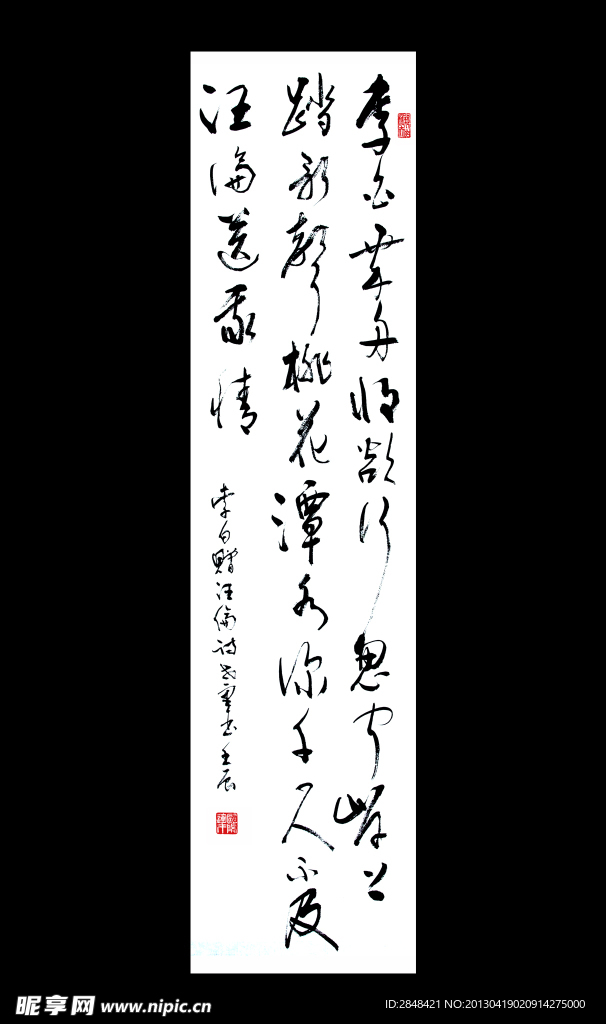 李白乘舟將欲行忽聞岸上
踏歌聲桃花潭水深千尺不及
汪倫送我情
李白贈汪倫詩書壬辰
昵享网 www.nipic.cn
ID:2848421 NO:20130419020914275000